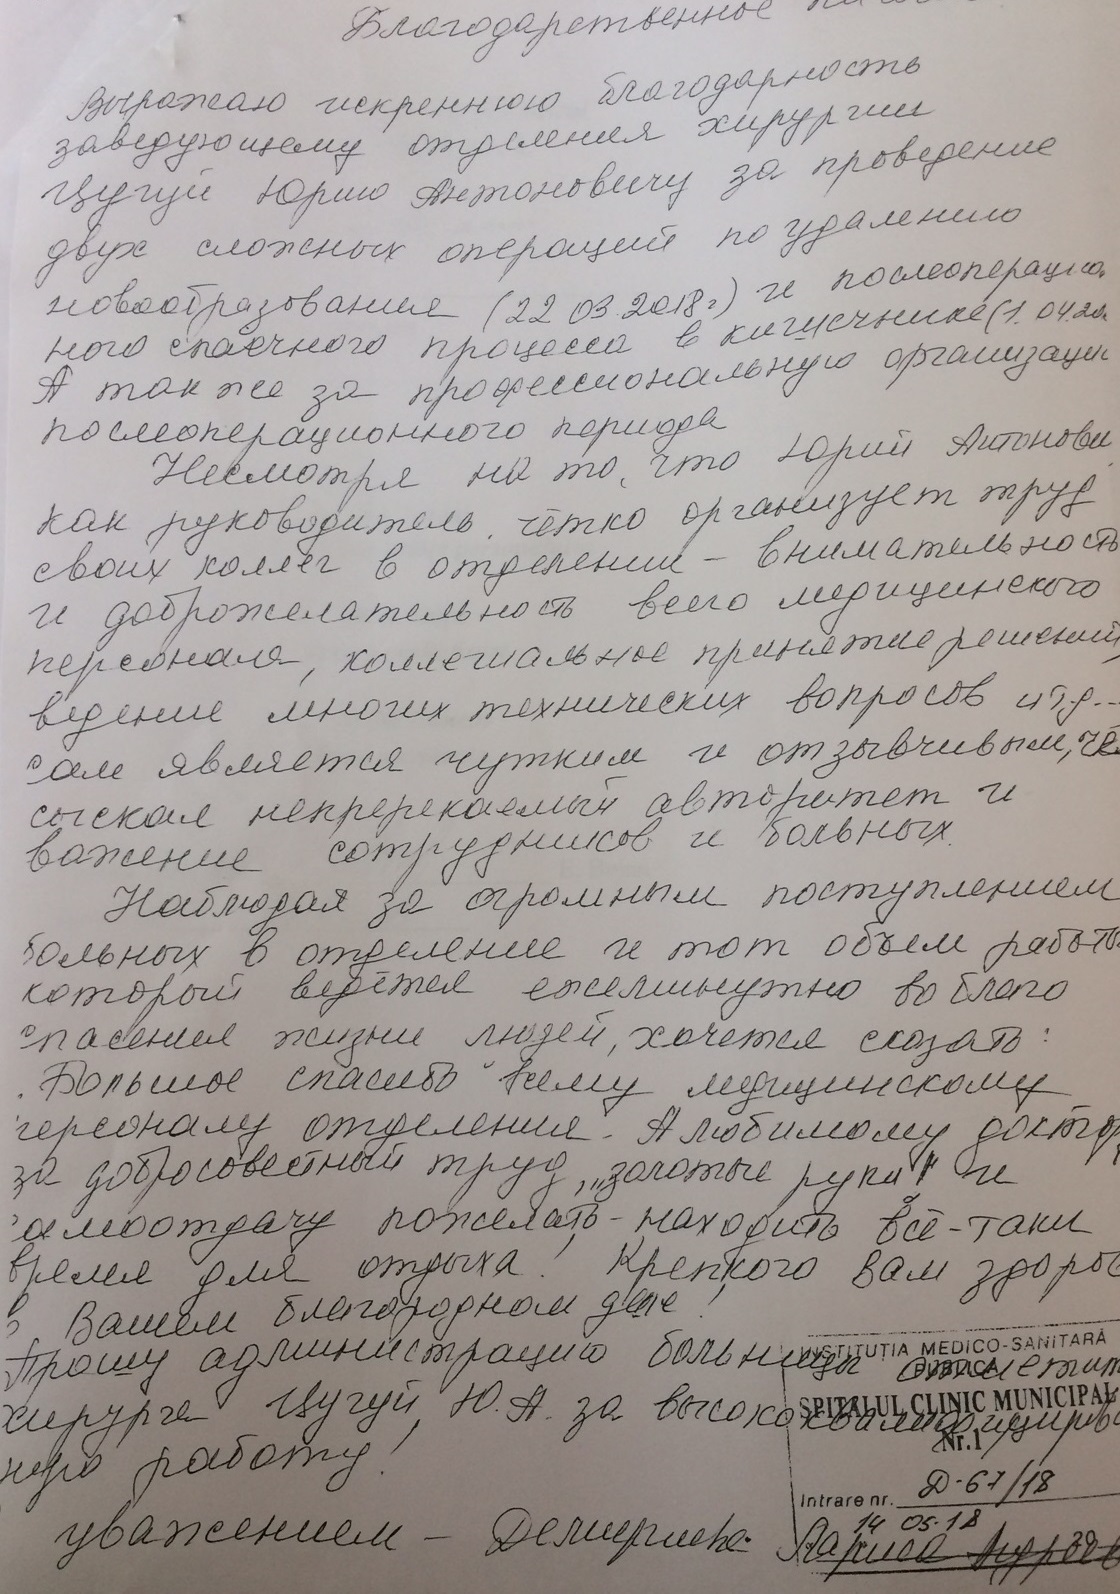 Благодарственное
Выражаю искреннюю благодарность
заведующему отделения хирургии
Цугуй Юрию Антоновичу за проведение
двух сложных операций по удалению
новообразования (22.03.2018г) и послеоперацио
ного спаечного процесса в кишечнике (1.04.20
А так же за профессиональную организации
послеоперационного периода
Несмотря на то, что Юрий Антонови
как руководитель, чётко организует труд
своих коллег в отделении - внимательность
и доброжелательность всего медицинского
персонала, коллегиальное принятие решений,
ведение многих технических вопросов и т.д...
сам является чутким и отзывчивым, чем
сыскал непререкаемый авторитет и
важение сотрудников и больных.
Наблюдая за огромным поступлением
больных в отделение и тот объем работы
который ведётся ежеминутно во благо
спасения жизни людей, хочется сказать:
Большое спасибо всему медицинскому
персоналу отделения. А любимому доктор
за добросовестный труд, „золотые руки" и
амоотдачу пожелать - находить всё-таки
время для отдыха! Крепкого Вам здоров
в Вашем благородном деле!
Прошу администрацию больницы отметить
хирурга Цугуй Ю.А. за высококвалифициров
ную работу!
уважением - Лариса
INSTITUȚIA MEDICO-SANITARĂ
PUBLICĂ
SPITALUL CLINIC MUNICIPAL
Nr.1
Intrare nr. Д-67/18
14 05.18 20